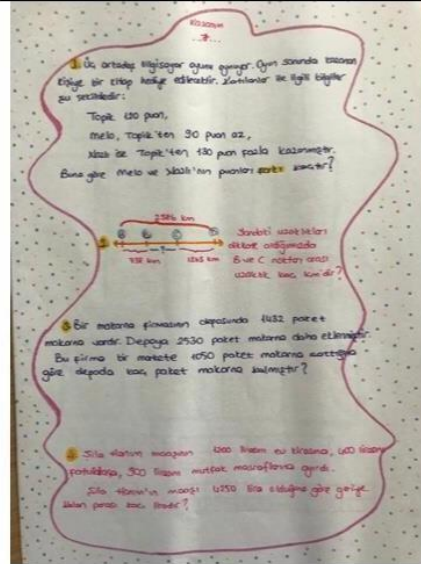 Kazanım
1. Üç arkadaş bilgisayar oyunu oynuyor. Oyun sonunda kazanan
kişiye bir kitap hediye edilecektir. Katılanlar ile ilgili bilgiler
şu şekildedir:
Topik puan,
Melo, Topik'ten 90 puan az,
Nazlı ise Topik'ten 130 puan fazla kazanmıştır.
Buna göre Melo ve Nazlı'nın puanları farkı kaçtır?
2.
2586 km
A B C D
?
738 km 1265 km
uzaklıkları
dikkate aldığımızda
B ve C noktası arası
uzaklık kaç km'dir?
3 Bir makarna firmasının deposunda 1432 paket
makarna vardır. Depoya 2530 paket makarna daha eklenmiştir.
Bu firma bir markete 1050 paket makarna sattığına
göre depoda kaç paket makarna kalmıştır?
4. Sıla Hanım maaşının 1200 lirasını ev kirasına, 400 lirasını
faturalara, 900 lirasını mutfak masraflarına ayırdı.
Sıla Hanım'ın maaşı 4250 lira olduğuna göre geriye
kalan parası kaç liradır?